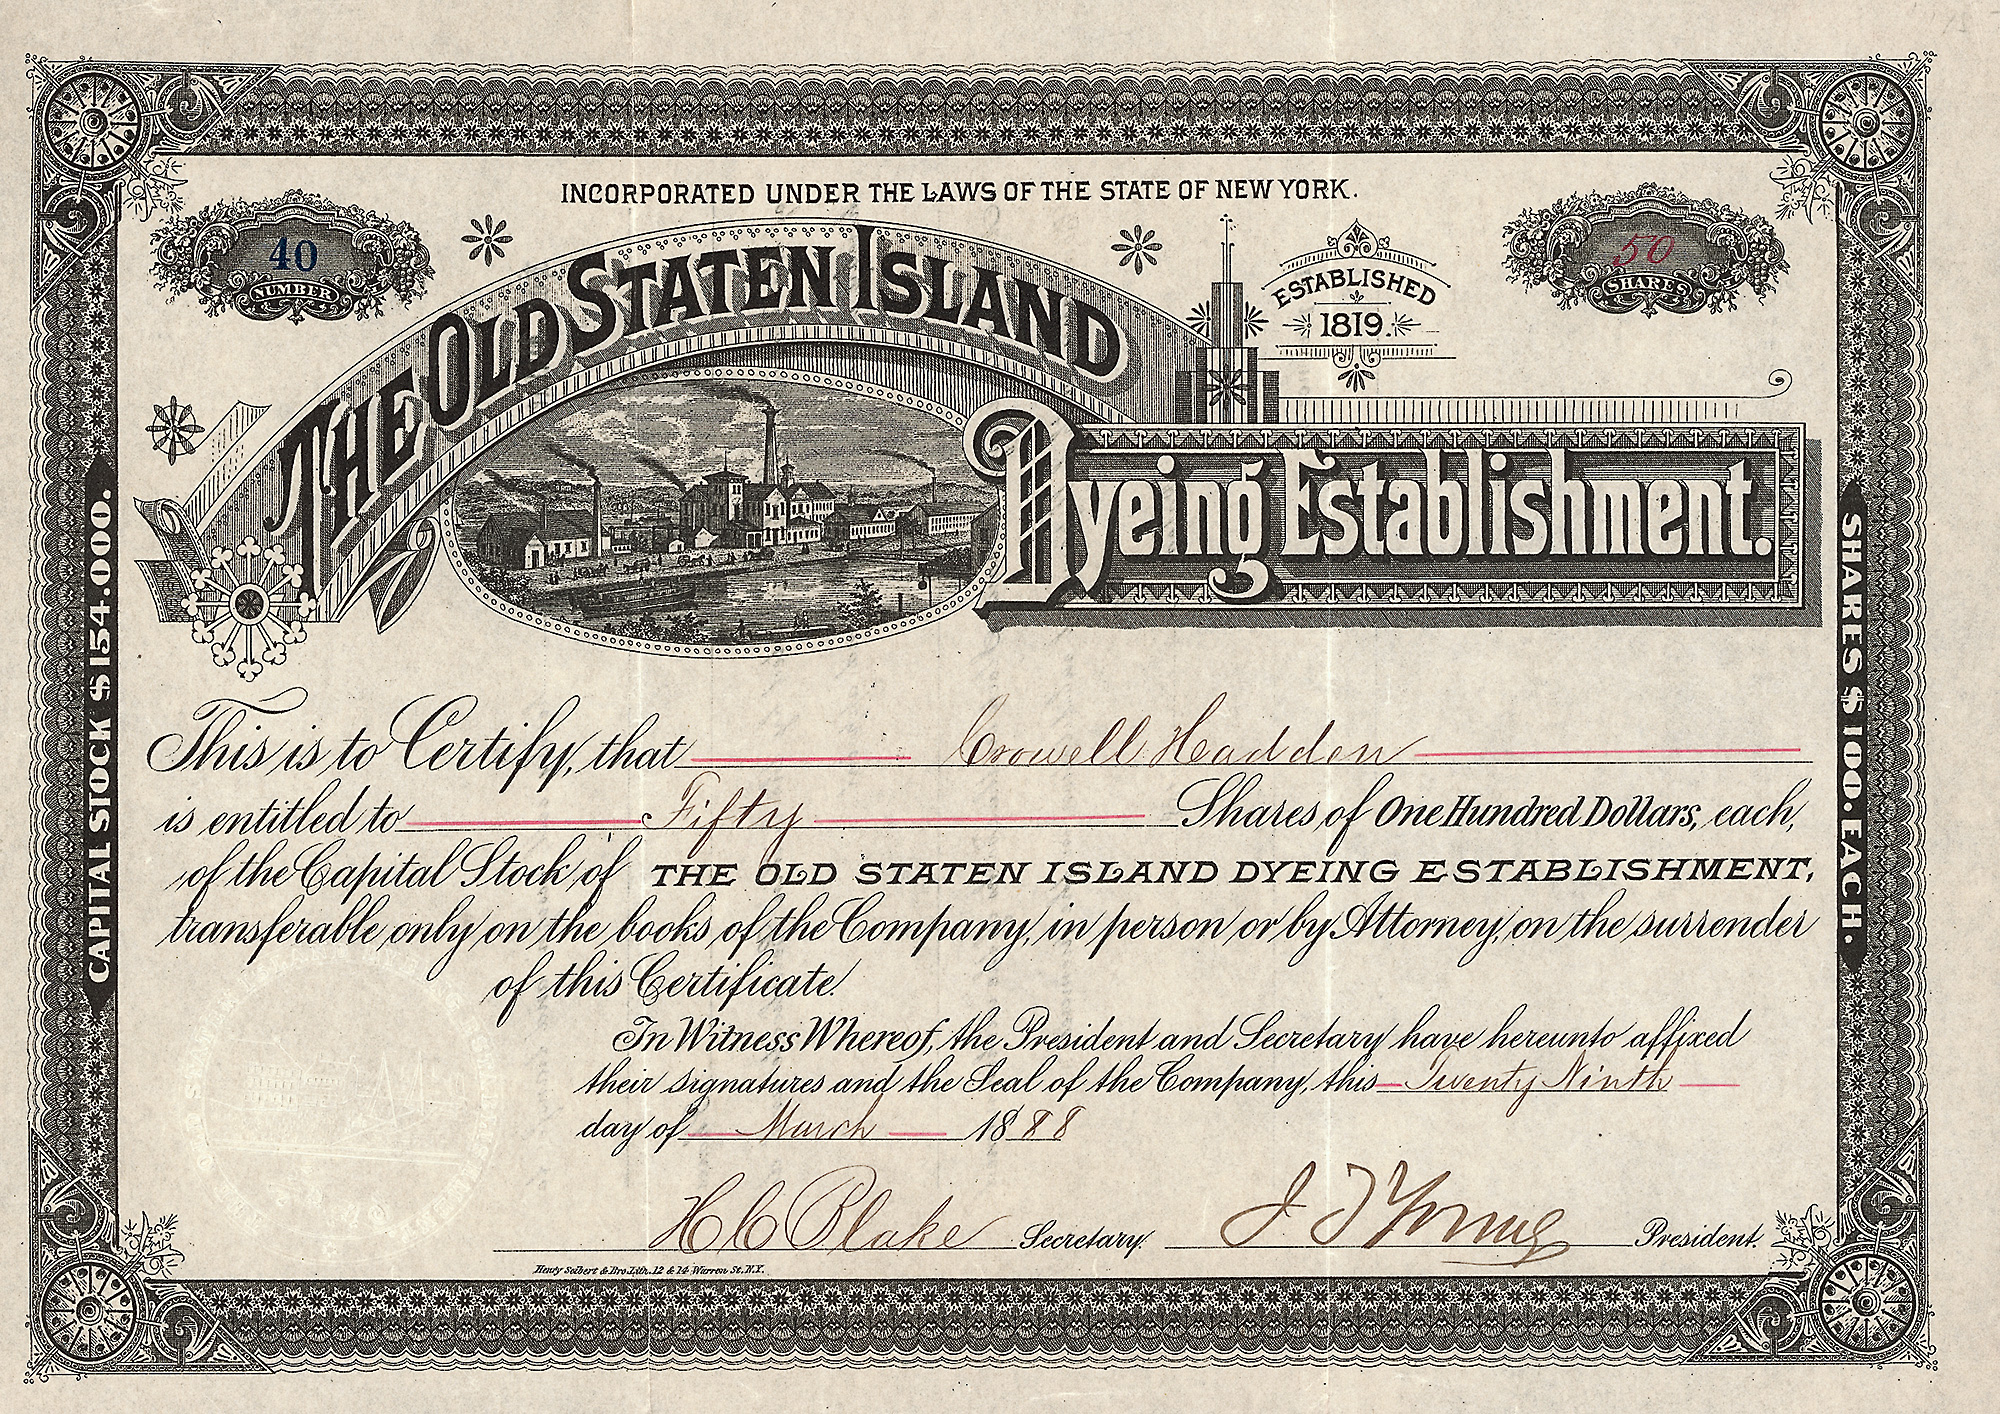 INCORPORATED UNDER THE LAWS OF THE STATE OF NEW YORK.
40
NUMBER
ESTABLISHED
1819.
50
SHARES
THE OLD STATEN ISLAND
Dyeing Establishment.
CAPITAL STOCK $154.000.
SHARES $100. EACH.
This is to Certify, that Crowell Hadden
is entitled to Fifty Shares of One Hundred Dollars, each,
of the Capital Stock of THE OLD STATEN ISLAND DYEING ESTABLISHMENT,
transferable only on the books of the Company, in person or by Attorney, on the surrender
of this Certificate.
In Witness Whereof, the President and Secretary have hereunto affixed
their signatures and the Seal of the Company, this Twenty Ninth
day of March 1888
H C Blake Secretary. J T Young President.
Henry Seibert & Bro. Lith. 12 & 14 Warren St. N.Y.